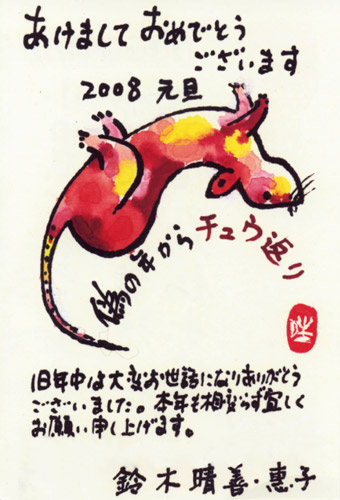 あけまして おめでとう
ございます
2008 元旦
偽の年からチュウ返り
旧年中は大変お世話になりありがとう
ございました。本年も相変らず宜しく
お願い申し上げます。
鈴木晴善・惠子